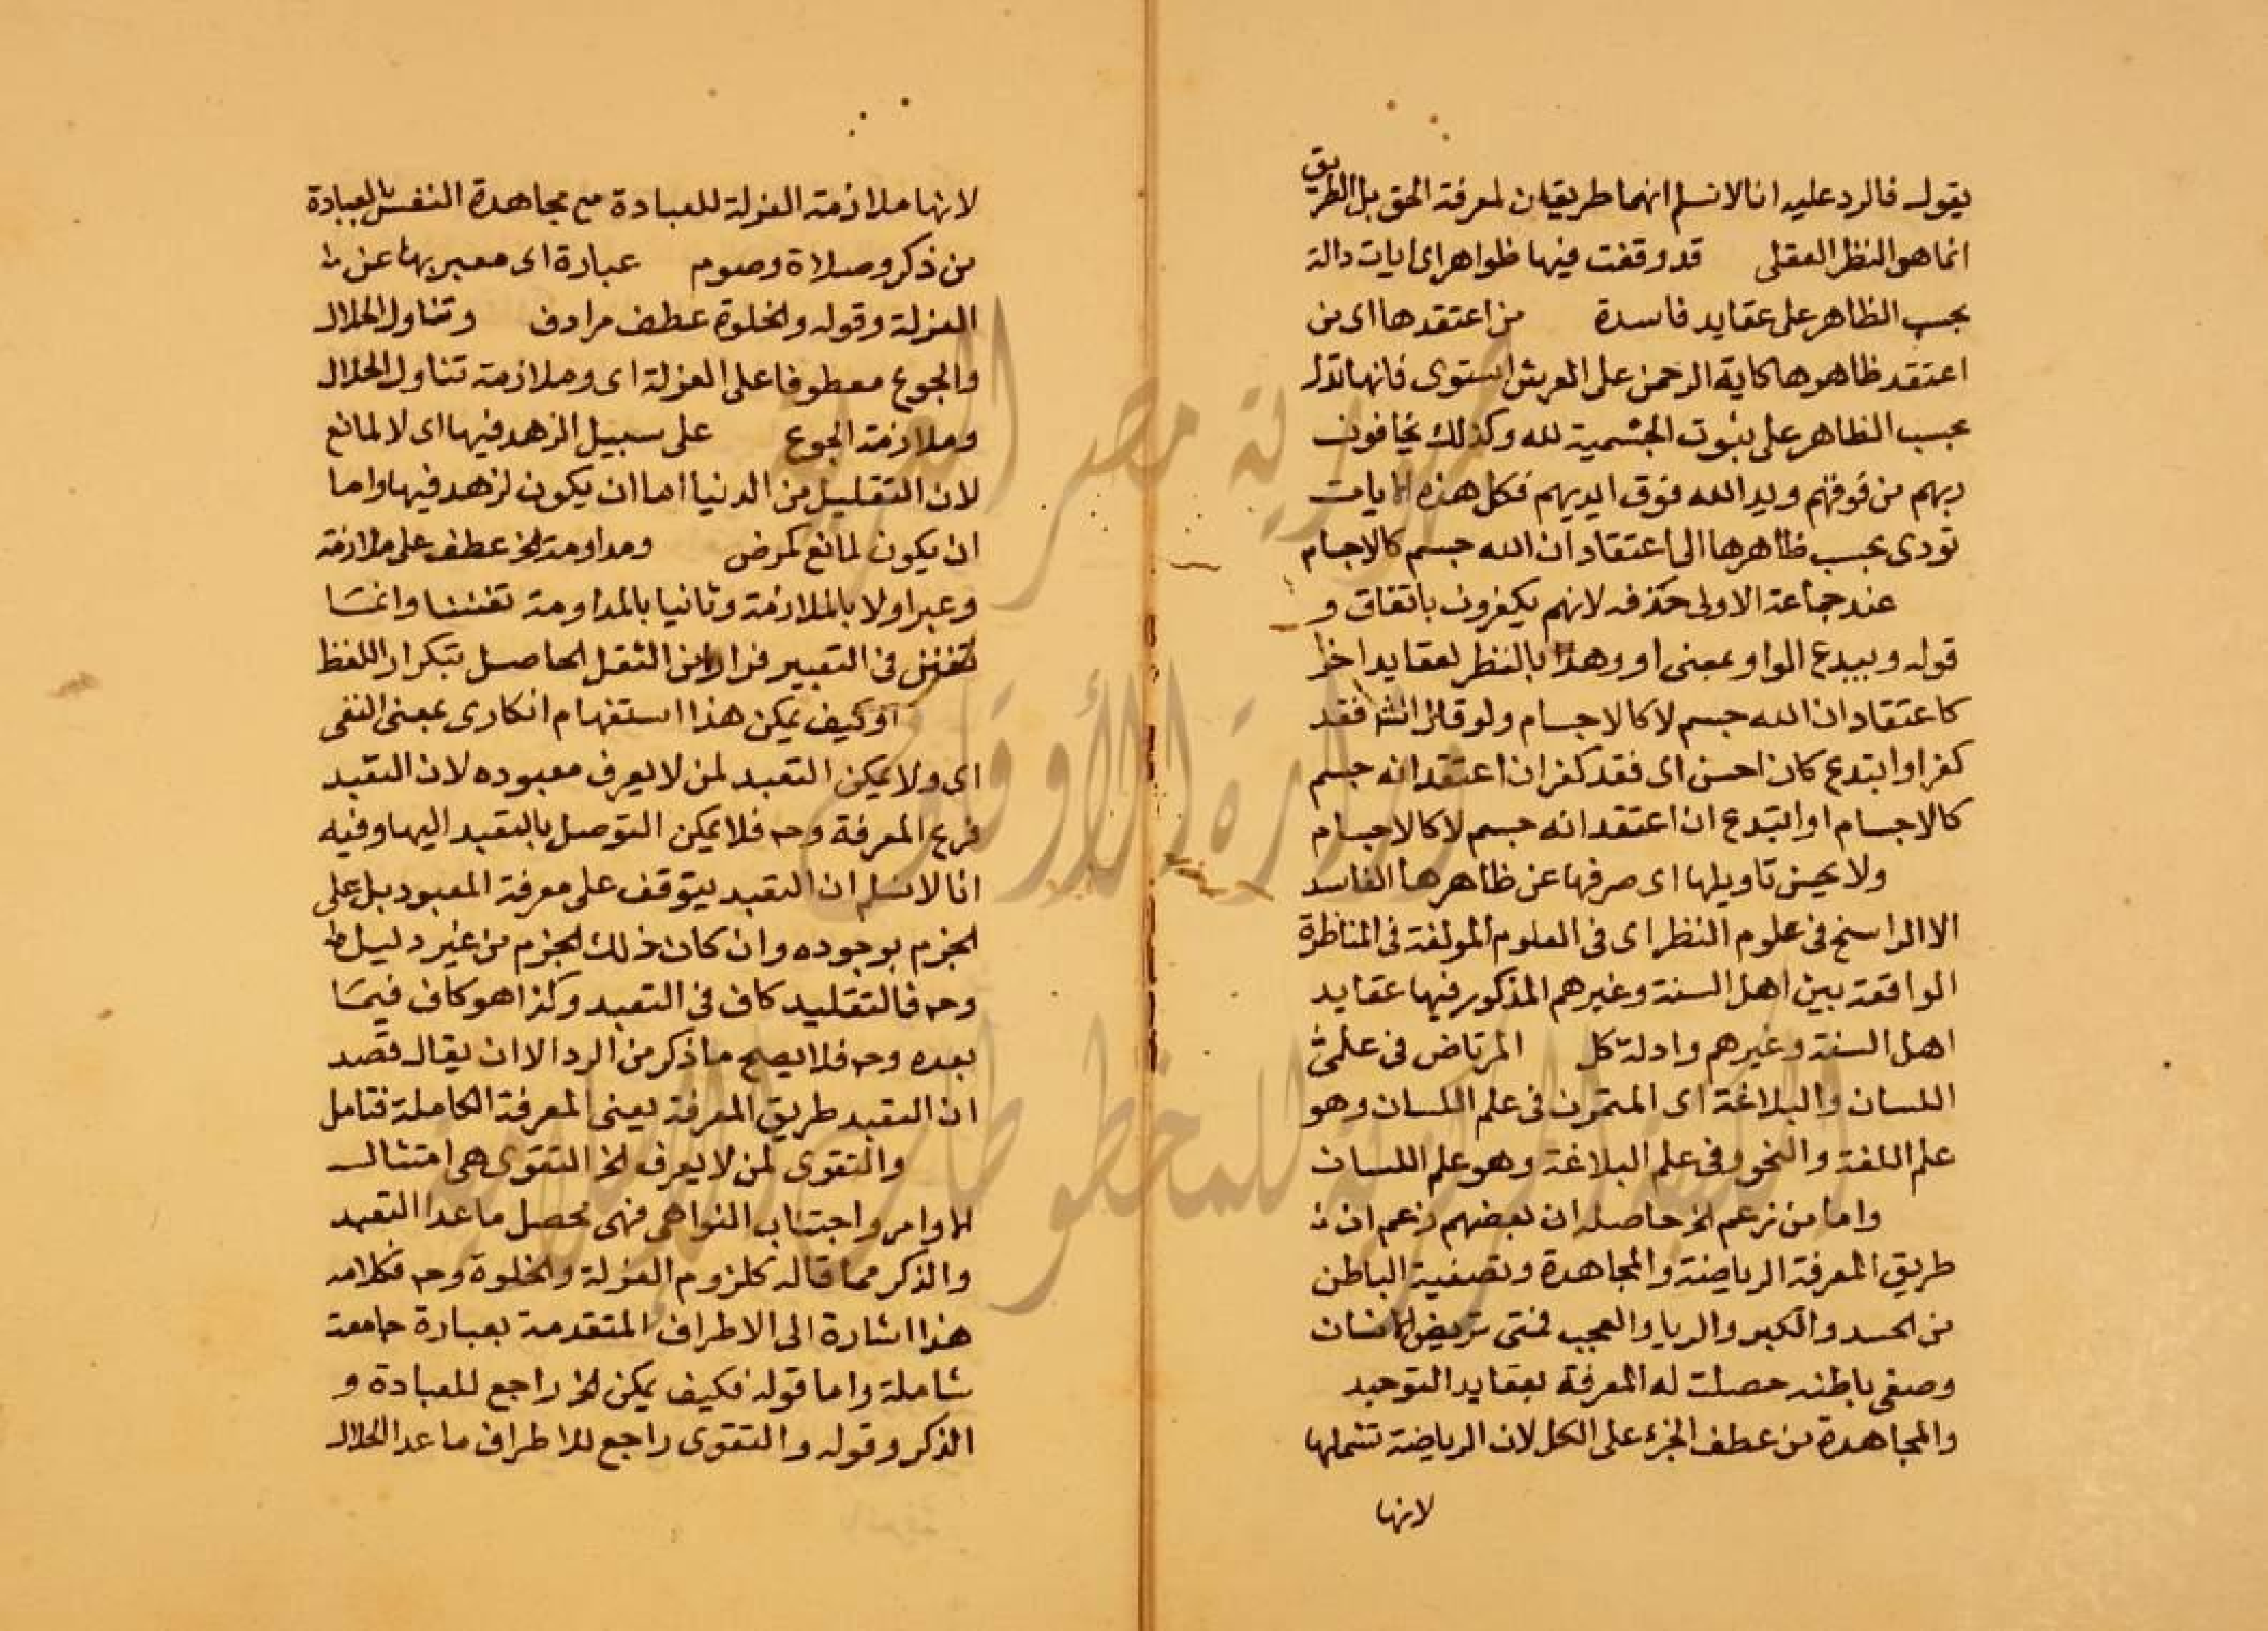 يقول فالرد عليه انا لا نسلم انهما طريقان لمعرفة الحق بل الطريق
انما هو النظر العقلى قد وقفت فيها ظواهر اى ايات دالة
بحسب الظاهر على عقايد فاسدة من اعتقدها اى من
اعتقد ظاهرها كاية الرحمن على العرش استوى فانها تدل
بحسب الظاهر على ثبوت الجسمية لله وكذلك يخافون
ربهم من فوقهم ويد الله فوق ايديهم فكل هذه الايات
تودى بحسب ظاهرها الى اعتقاد ان الله جسم كالاجسام
عند جماعة الاولى حذفه لانهم يكفرون باتفاق و
قوله ويبدع الواو بمعنى او وهذا بالنظر لعقايد اخر
كاعتقاد ان الله جسم لا كالاجسام ولو قال الش فقد
كفر او ابتدع كان احسن اى فقد كفر ان اعتقد انه جسم
كالاجسام او ابتدع ان اعتقد انه جسم لا كالاجسام
ولا يحسن تاويلها اى صرفها عن ظاهرها الفاسد
الا الراسخ فى علوم النظر اى فى العلوم المولفة فى المناظرة
الواقعة بين اهل السنة وغيرهم المذكور فيها عقايد
اهل السنة وغيرهم وادلة كل المرتاض فى علمى
اللسان والبلاغة اى المتمرن فى علم اللسان وهو
علم اللغة والنحو وفى علم البلاغة وهو علم اللسان
واما من زعم الخ حاصله ان بعضهم زعم ان
طريق المعرفة الرياضة والمجاهدة وتصفية الباطن
من الحسد والكبر والريا والعجب فمتى تريض الانسان
وصفى باطنه حصلت له المعرفة بعقايد التوحيد
والمجاهدة من عطف الجزء على الكل لان الرياضة تشملها
لانها
لانها ملازمة العزلة للعبادة مع مجاهدة النفس بالعبادة
من ذكر وصلاة وصوم عبارة اى معبر بها عن
العزلة وقوله والخلوة عطف مرادف وتناول الحلال
والجوع معطوفا على العزلة اى وملازمة تناول الحلال
وملازمة الجوع على سبيل الزهد فيها اى لا لمانع
لان التقليل من الدنيا اما ان يكون لزهد فيها واما
ان يكون لمانع كمرض ومداومة الخ عطف على ملازمة
وعبر اولا بالملازمة وثانيا بالمداومة تفننا وانما
تفنن فى التعبير فرارا من الثقل الحاصل بتكرار اللفظ
او كيف يمكن هذا استفهام انكارى بمعنى النفى
اى ولا يمكن التعبد لمن لا يعرف معبوده لان التعبد
فرع المعرفة وح فلا يمكن التوصل بالتعبد اليها وفيه
انا لا نسلم ان التعبد يتوقف على معرفة المعبود بل على
الجزم بوجوده وان كان ذلك الجزم من غير دليل
وح فالتقليد كاف فى التعبد وكذا هو كاف فيما
بعده وح فلا يصح ما ذكر من الرد الا ان يقال قصد
ان التعبد طريق المعرفة يعنى المعرفة الكاملة فتامل
والتقوى لمن لا يعرف الخ التقوى هى امتثال
الاوامر واجتناب النواهى فهى تحصل ما عدا التعبد
والذكر مما قاله كلزوم العزلة والخلوة وح فكلامه
هذا اشارة الى الاطراف المتقدمة بعبارة جامعة
شاملة واما قوله فكيف يمكن الخ راجع للعبادة و
الذكر وقوله والتقوى راجع للاطراف ما عدا الحلال
جمهورية مصر العربية
وزارة الأوقاف
المكتبة المركزية للمخطوطات الإسلامية